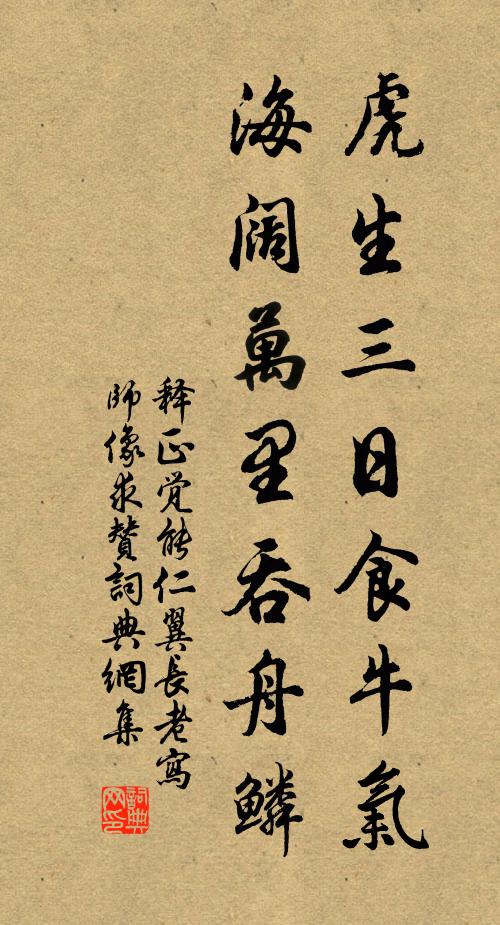 虎生三日食牛氣
海阔萬里吞舟鱗
释正觉能仁翼長老寫
師像求賛詞典網集
詞典
网印